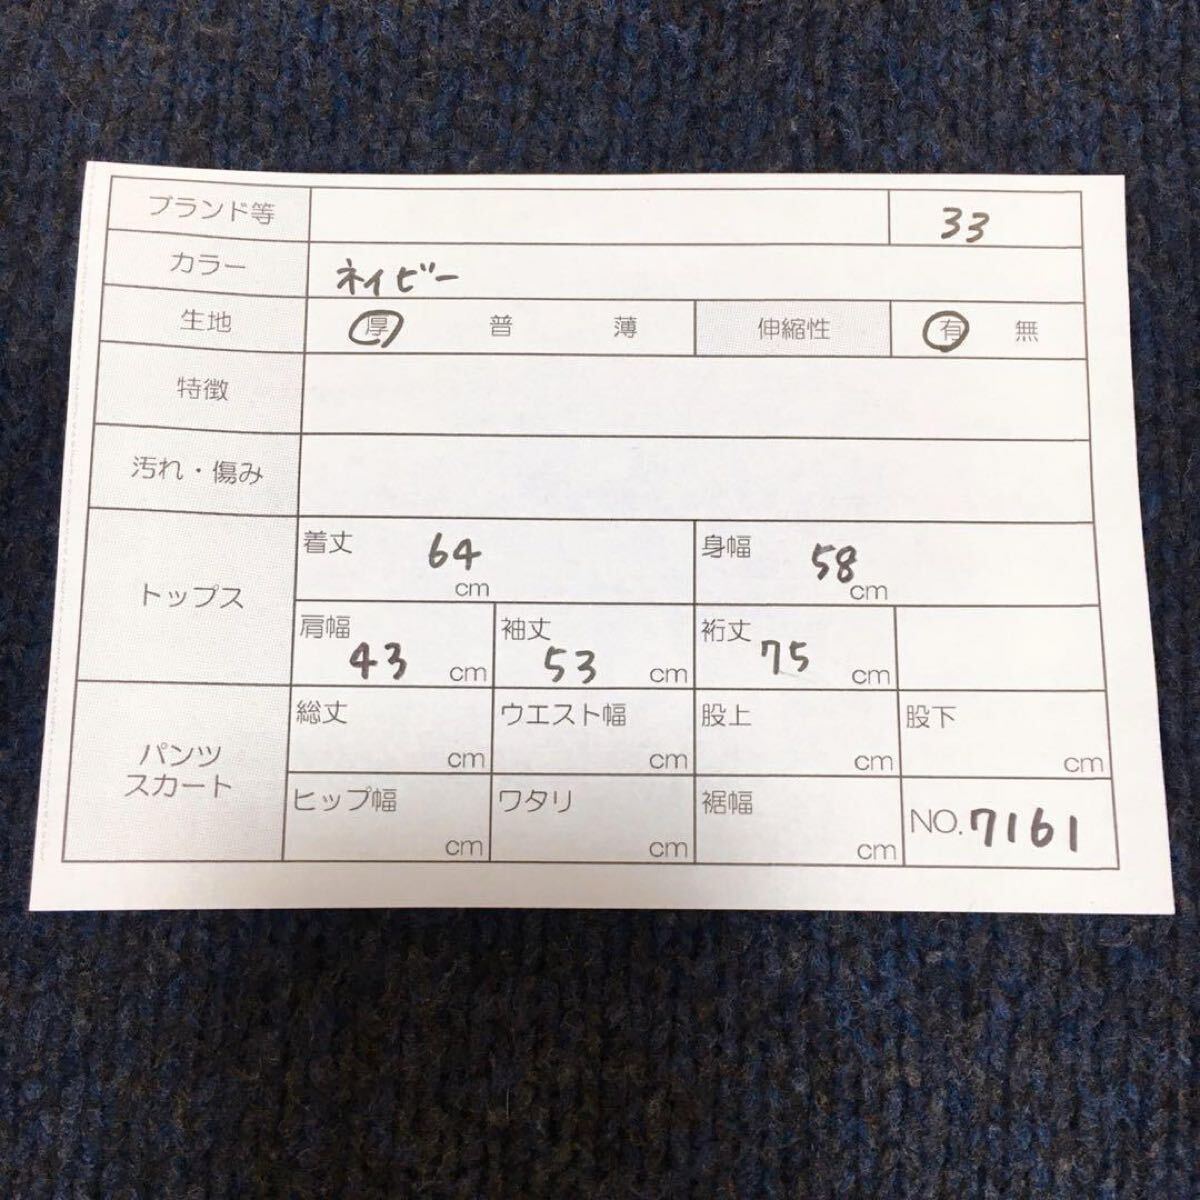 ブランド等 33
カラー ネイビー
生地 厚 普 薄 伸縮性 有 無
特徴
汚れ・傷み
トップス
着丈 64 cm 身幅 58 cm
肩幅 43 cm 袖丈 53 cm 裄丈 75 cm
パンツ
スカート
総丈 cm ウエスト幅 cm 股上 cm 股下 cm
ヒップ幅 cm ワタリ cm 裾幅 cm NO. 7161